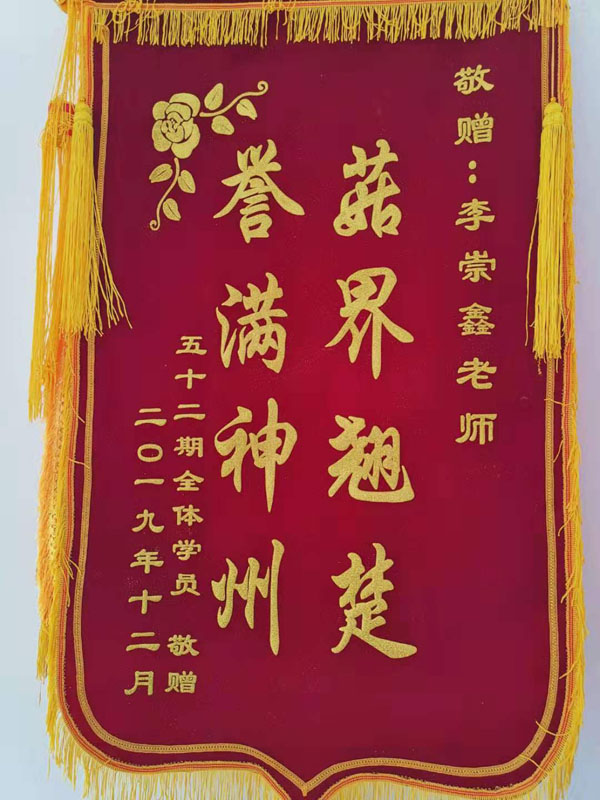 敬赠:李崇鑫老师
菇界翘楚
誉满神州
五十二期全体学员 敬赠
二〇一九年十二月